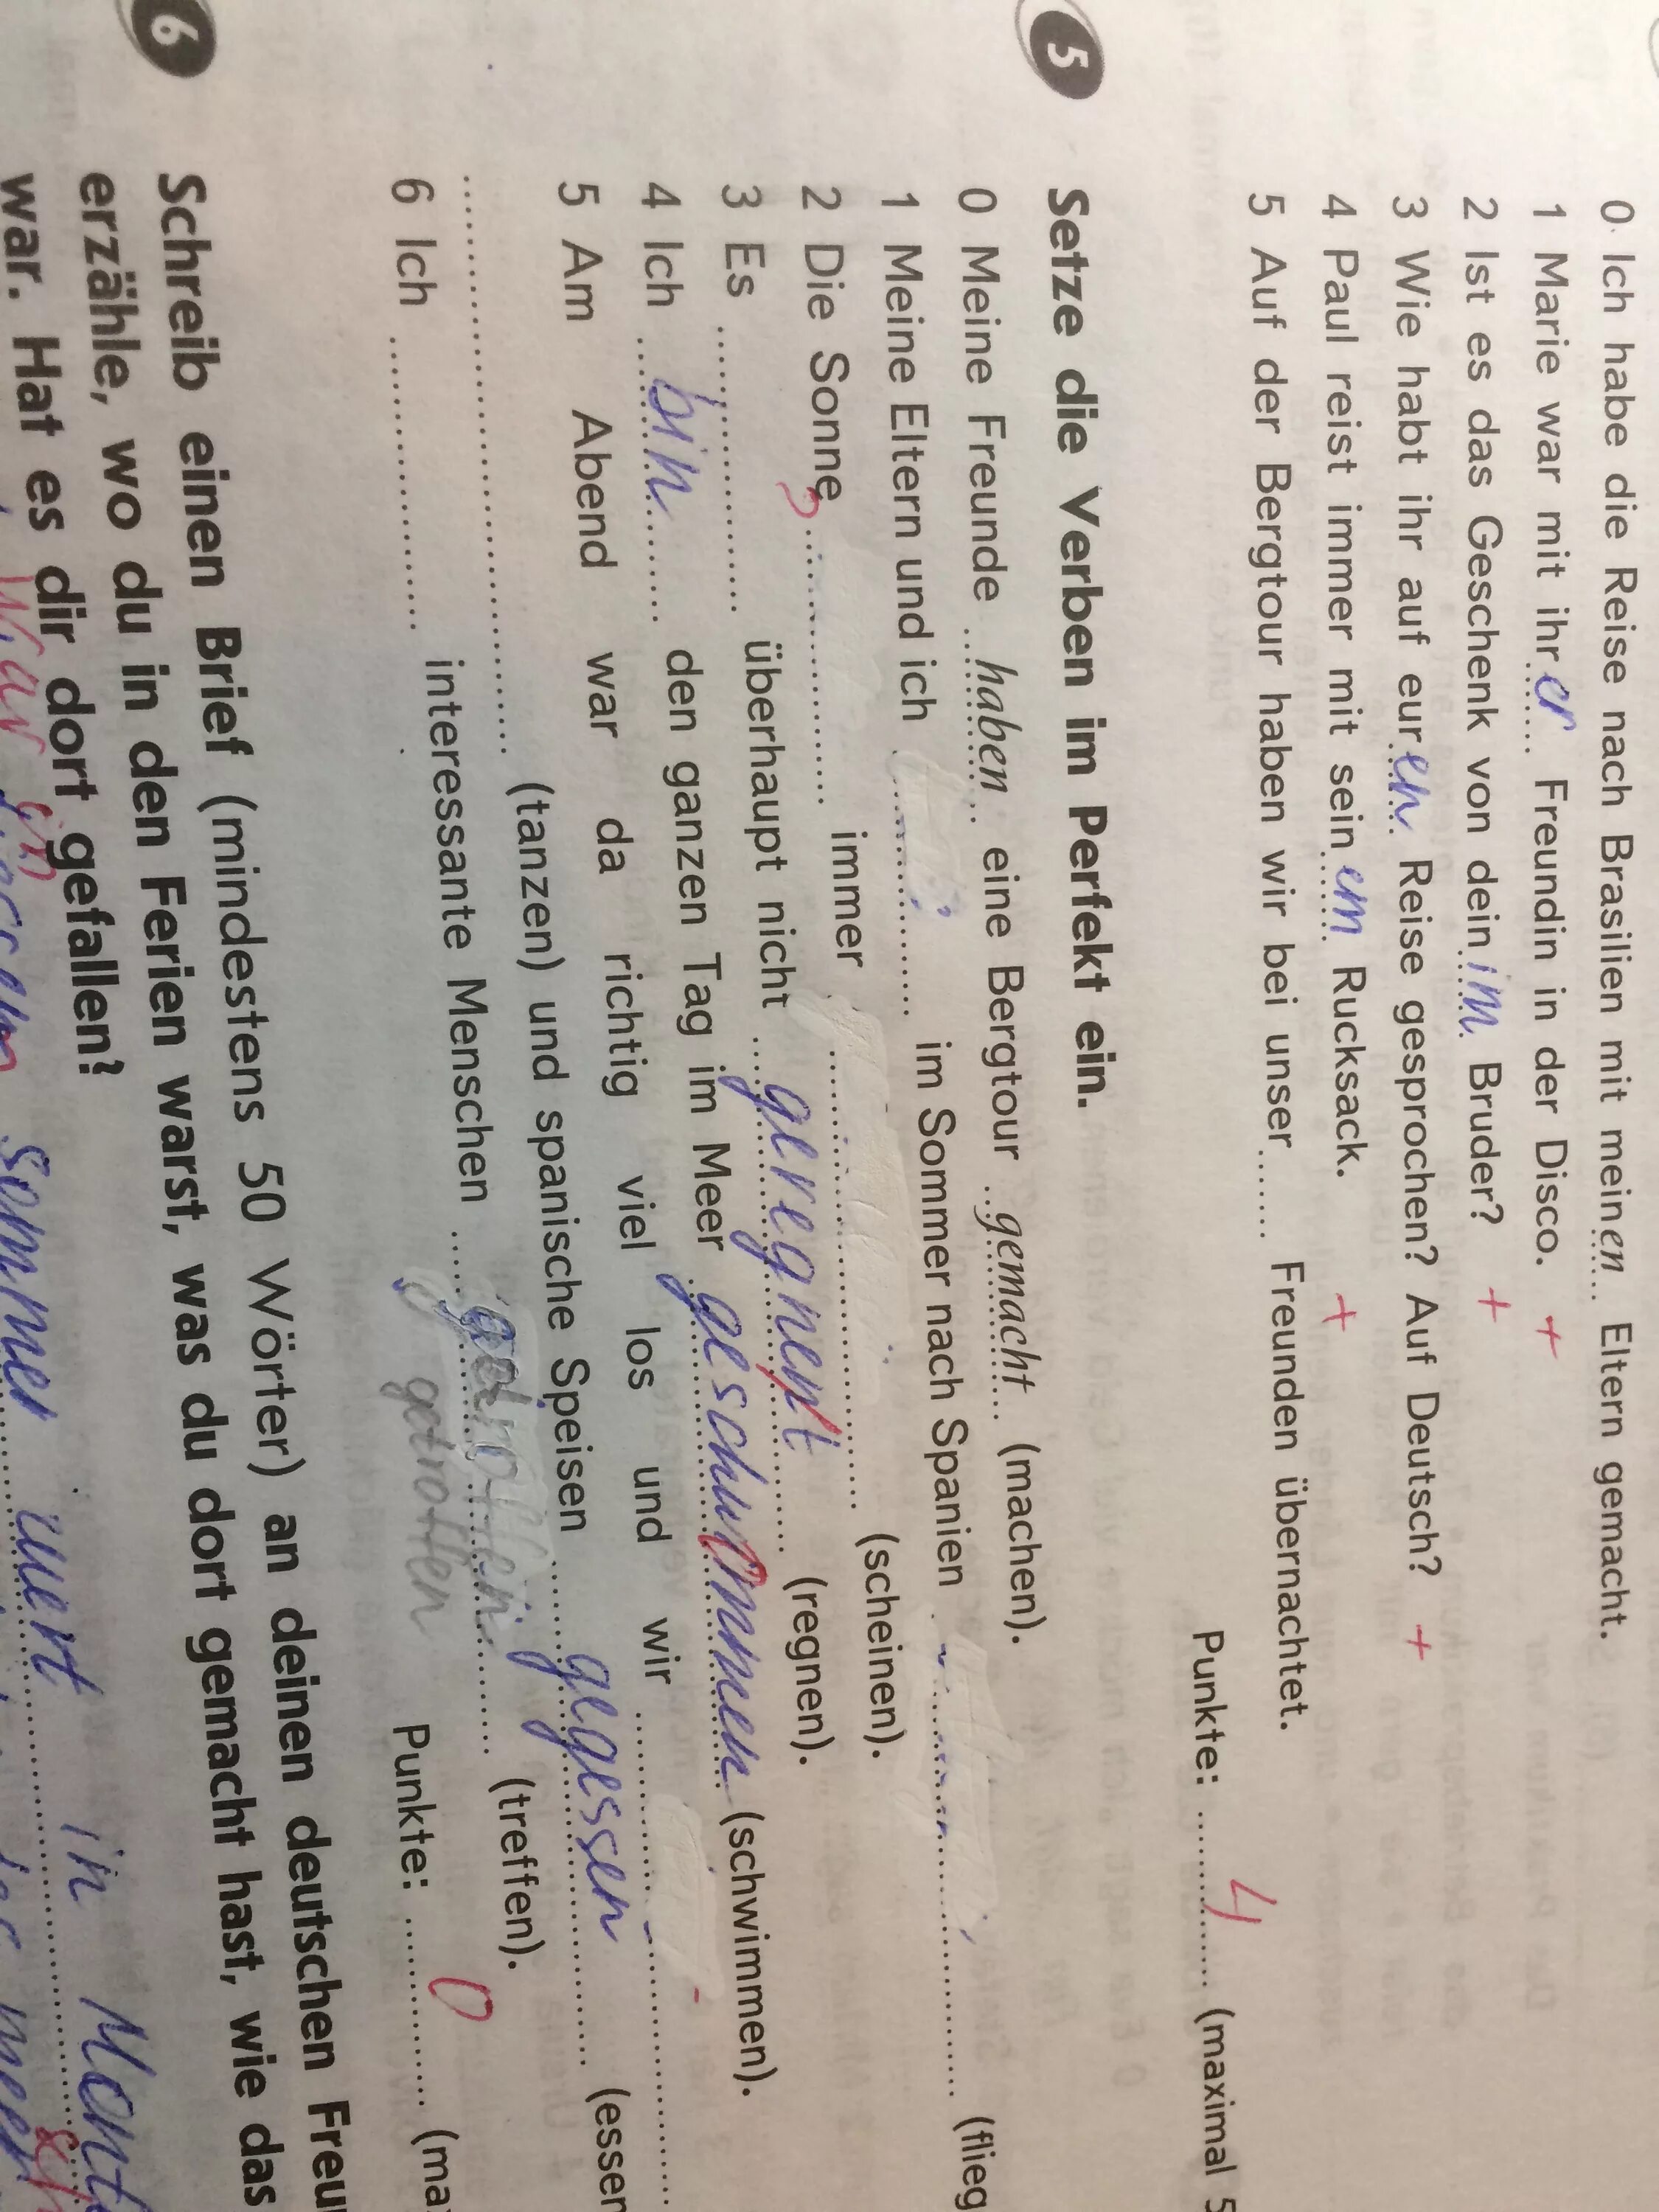 0 Ich habe die Reise nach Brasilien mit meinen Eltern gemacht.
1 Marie war mit ihrer Freundin in der Disco. +
2 Ist es das Geschenk von deinim Bruder? +
3 Wie habt ihr auf euren Reise gesprochen? Auf Deutsch? +
4 Paul reist immer mit seinem Rucksack. +
5 Auf der Bergtour haben wir bei unser...... Freunden übernachtet.
Punkte: 4 (maximal 5
5 Setze die Verben im Perfekt ein.
0 Meine Freunde haben eine Bergtour gemacht (machen).
1 Meine Eltern und ich .................. im Sommer nach Spanien .................. (flieg
2 Die Sonne .................. immer .................. (scheinen).
3 Es .................. überhaupt nicht geregnent (regnen).
4 Ich bin den ganzen Tag im Meer geschwommen (schwimmen).
5 Am Abend war da richtig viel los und wir ..................
.................. (tanzen) und spanische Speisen gegessen (essen
6 Ich .................. interessante Menschen getroffen (treffen).
getroffen
Punkte: 0 (ma
6 Schreib einen Brief (mindestens 50 Wörter) an deinen deutschen Freu
erzähle, wo du in den Ferien warst, was du dort gemacht hast, wie das
war. Hat es dir dort gefallen?
war in
Sommer in